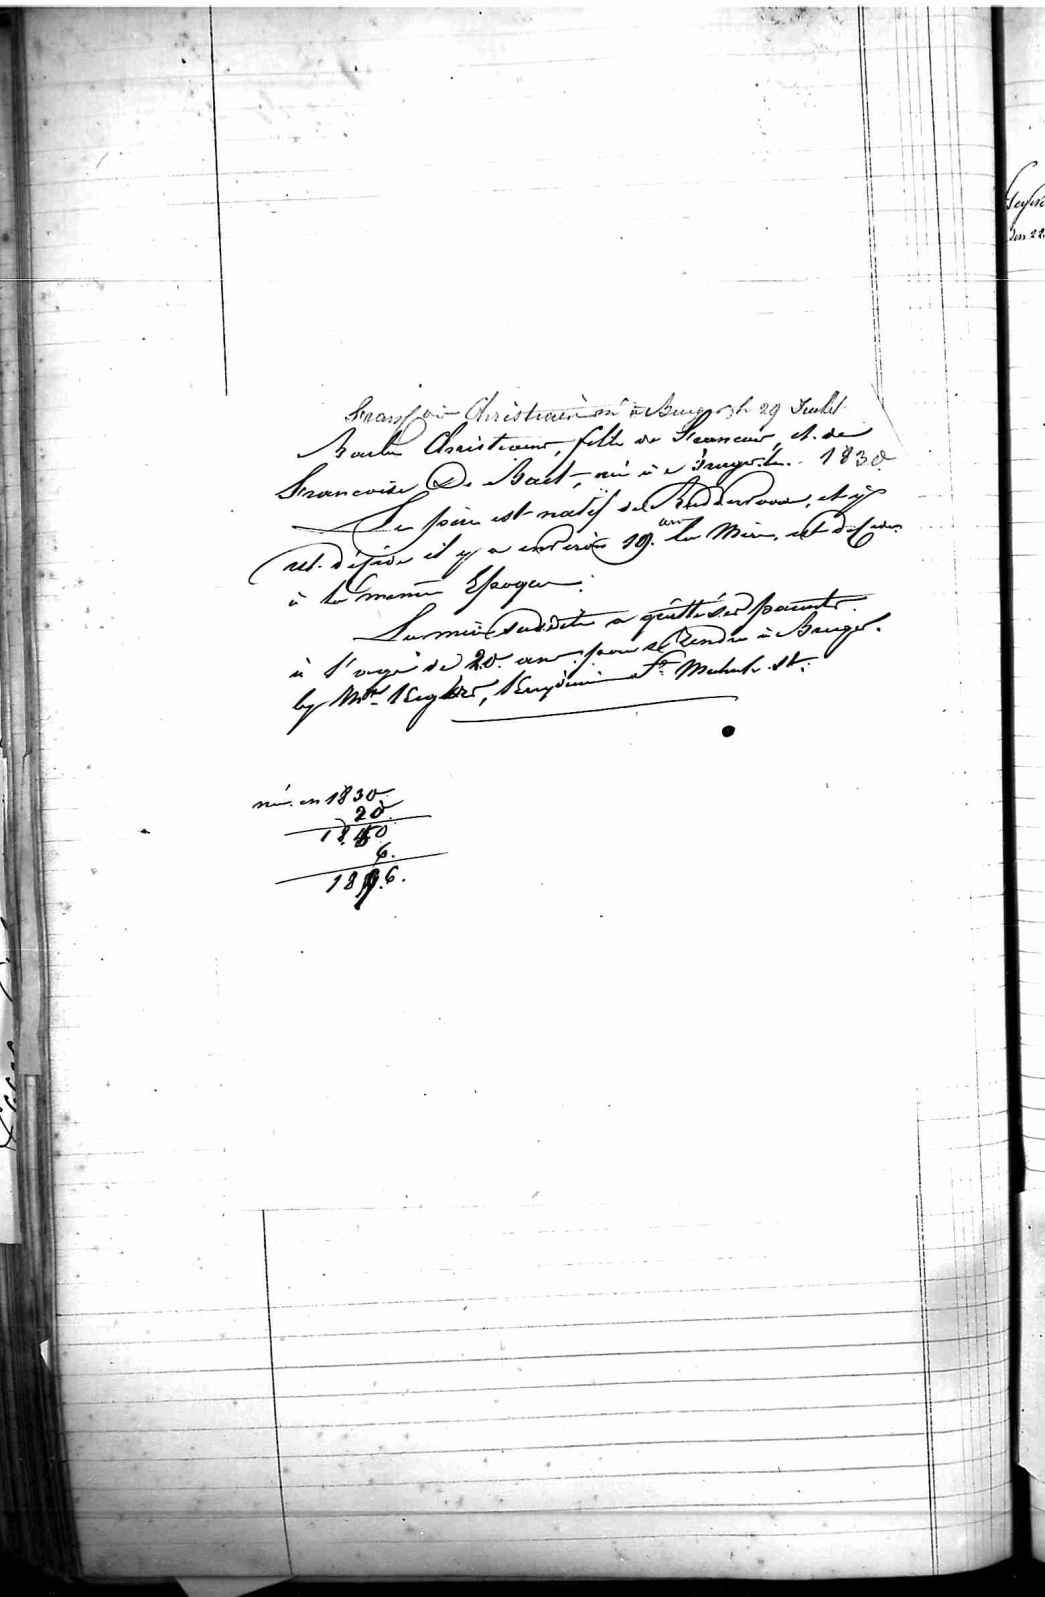 François Christiaens né à Bruges le 29 Juillet
Christiaens, fille de Francois, et de
Francoise De Baet, né à Bruges le 1830
Le père est natif de Ruddervoorde, et y
est décédé il y a environ 19 ans la Mère, est décédée
à la même Epoque.
La mère susdite a quitté ses parents
à l'age de 20 ans pour se rendre à Bruges.
by Mr
né en 1830
20
1850
6.
18 6.